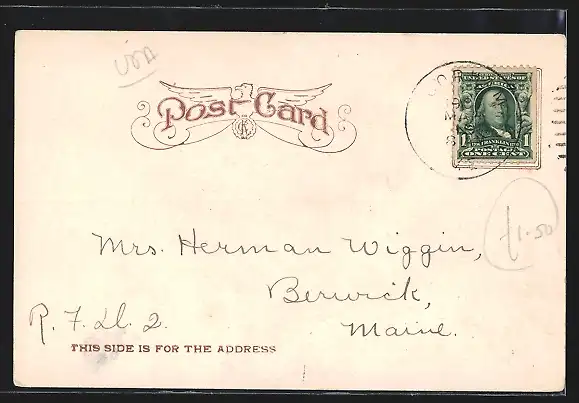 USA
Post Card
UNITED STATES OF
AMERICA
1 1
POSTAGE
ONE CENT
£1.50
Mrs. Herman Wiggin,
Berwick,
Maine.
R. F. D. 2.
THIS SIDE IS FOR THE ADDRESS